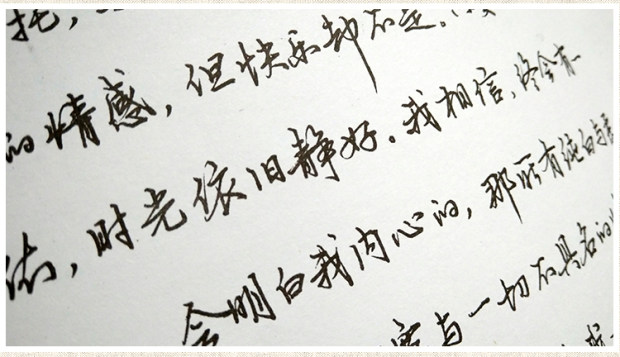 托，
的情感，但快乐却不是.
，时光依旧静好.我相信，终会
会明白我内心的，那所有纯白
与一切不具名的